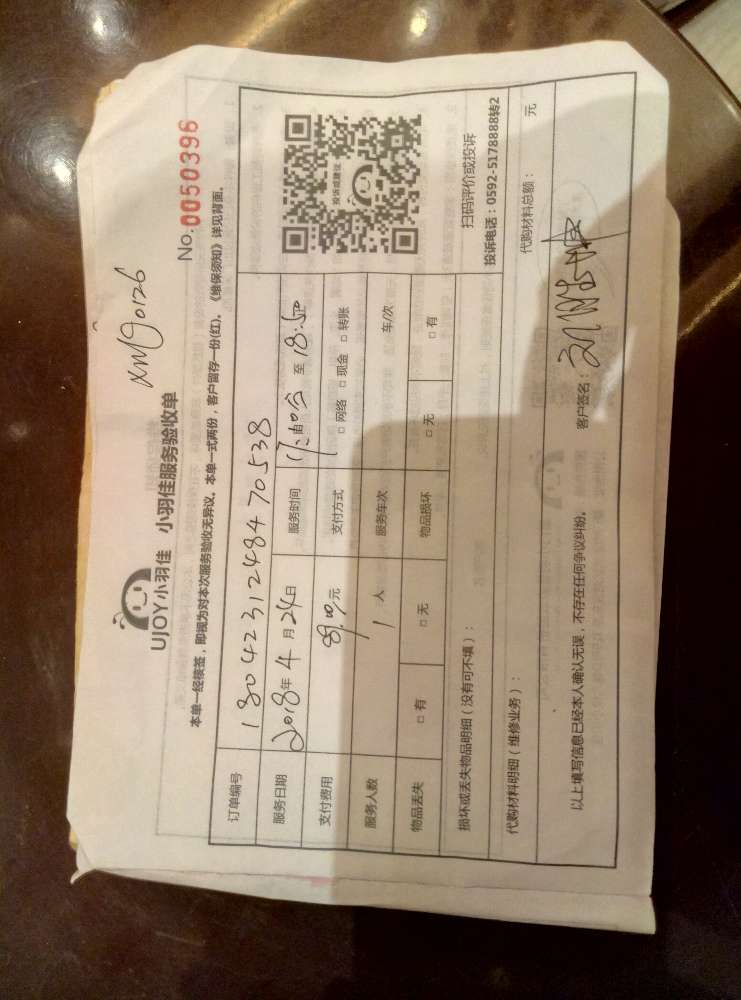 XM90126
No.0050396
UJOY小羽佳 小羽佳服务验收单
本单一经核签，即视为对本次服务验收无异议。本单一式两份，客户留存一份(红)。《维保须知》详见背面。
订单编号 180423124847 0538
服务日期 2018年4月24日 服务时间 至 18:50
支付费用 89.00元 支付方式 □ 网络 □ 现金 □ 转账
服务人数 1 人 服务车次 车/次
物品丢失 □ 有 □ 无 物品损坏 □ 无 □ 有
投诉或建议
扫码评价或投诉
投诉电话：0592-5178888转2
损坏或丢失物品明细（没有可不填）：
代购材料明细（维修业务）： 代购材料总额： 元
以上填写信息已经本人确认无误，不存在任何争议纠纷。 客户签名：